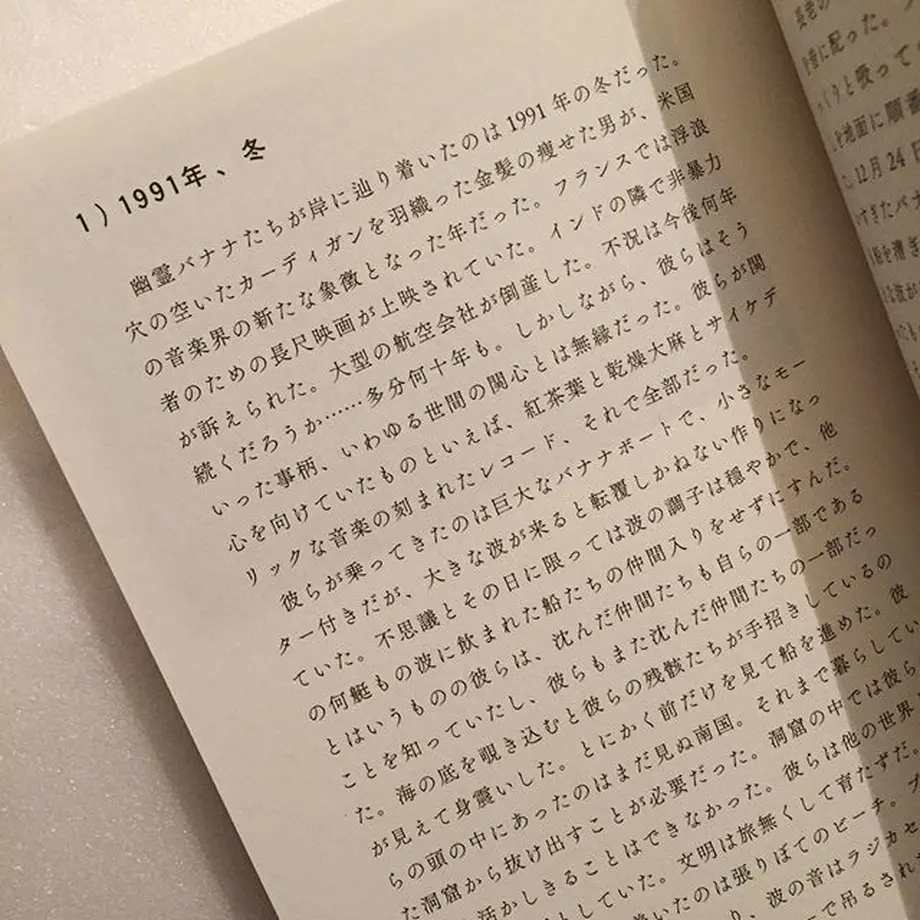 1）1991年、冬
幽霊バナナたちが岸に辿り着いたのは1991年の冬だった。
穴の空いたカーディガンを羽織った金髪の痩せた男が、米国
の音楽界の新たな象徴となった年だった。フランスでは浮浪
者のための長尺映画が上映されていた。インドの隣で非暴力
が訴えられた。大型の航空会社が倒産した。不況は今後何年
続くだろうか……多分何十年も。しかしながら、彼らはそう
いった事柄、いわゆる世間の関心とは無縁だった。彼らが関
心を向けていたものといえば、紅茶葉と乾燥大麻とサイケデ
リックな音楽の刻まれたレコード、それで全部だった。
彼らが乗ってきたのは巨大なバナナボートで、小さなモー
ター付きだが、大きな波が来ると転覆しかねない作りになっ
ていた。不思議とその日に限っては波の調子は穏やかで、他
の何艇もの波に飲まれた船たちの仲間入りをせずにすんだ。
とはいうものの彼らは、沈んだ仲間たちも自らの一部である
ことを知っていたし、彼らもまた沈んだ仲間たちの一部だっ
た。海の底を覗き込むと彼らの残骸たちが手招きしているの
が見えて身震いした。とにかく前だけを見て船を進めた。彼
らの頭の中にあったのはまだ見ぬ南国。それまで暮らしてい
た洞窟から抜け出すことが必要だった。洞窟の中では彼ら
活かしきることはできなかった。彼らは他の世界
としていた。文明は旅無くして育たずだ。
着いたのは張りぼてのビーチ。プ
り、波の音はラジカセ
で吊るされ
長老の
に配った。
っくりと吸って
地面に順番
12月24日
すぎたバナ